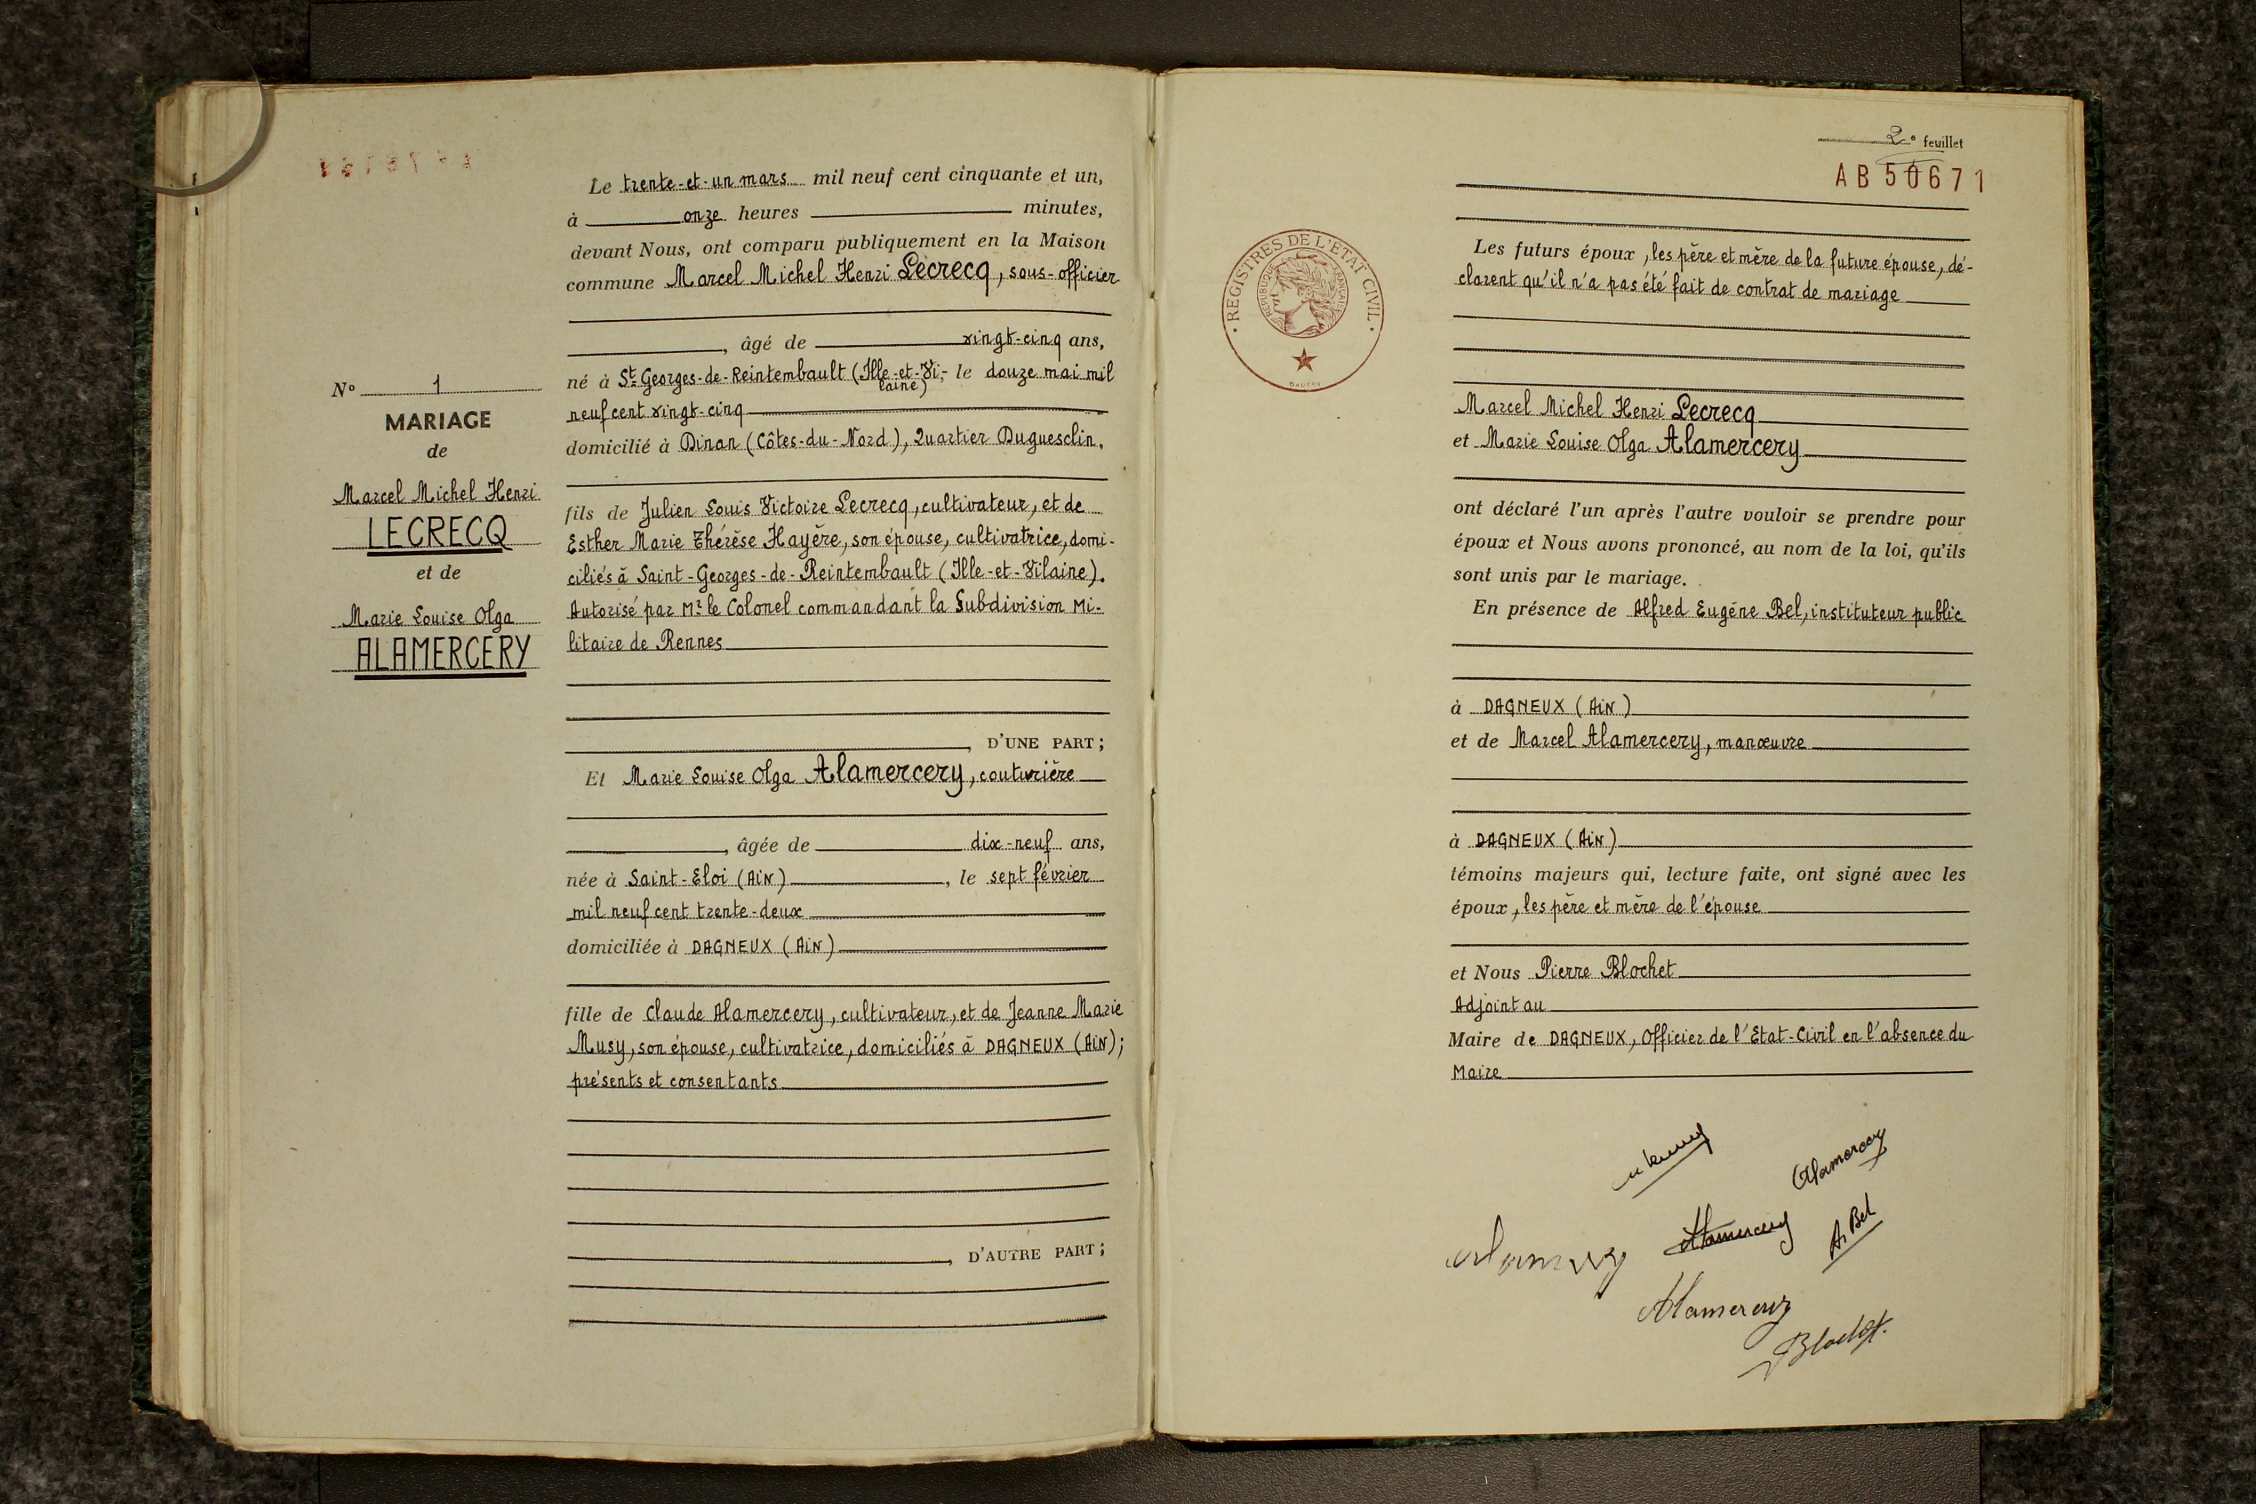 Le trente-et-un mars mil neuf cent cinquante et un,
à onze heures minutes,
devant Nous, ont comparu publiquement en la Maison
commune Marcel Michel Henri Lecrecq, sous-officier
, âgé de vingt-cinq ans,
né à St Georges-de-Reintembault (Ille-et-Vi-
laine) le douze mai mil
neuf cent vingt-cinq
domicilié à Dinan (Côtes-du-Nord), Quartier Duguesclin.
fils de Julien Louis Victoire Lecrecq, cultivateur, et de
Esther Marie Thérèse Hayère, son épouse, cultivatrice, domi-
ciliés à Saint-Georges-de-Reintembault (Ille-et-Vilaine).
Autorisé par Mr le Colonel commandant la Subdivision Mi-
litaire de Rennes
, D'UNE PART ;
Et Marie Louise Olga Alamercery, couturière
, âgée de dix-neuf ans,
née à Saint-Eloi (AiN) , le sept février
mil neuf cent trente-deux
domiciliée à DAGNEUX (AiN)
fille de Claude Alamercery, cultivateur, et de Jeanne Marie
Musy, son épouse, cultivatrice, domiciliés à DAGNEUX (AiN) ;
présents et consentants
, D'AUTRE PART ;
No 1
MARIAGE
de
Marcel Michel Henri
LECRECQ
et de
Marie Louise Olga
ALAMERCERY
2e feuillet
AB50671
REGISTRES DE L'ÉTAT CIVIL
RÉPUBLIQUE FRANÇAISE
Les futurs époux, les père et mère de la future épouse, dé-
clarent qu'il n'a pas été fait de contrat de mariage
Marcel Michel Henri Lecrecq
et Marie Louise Olga Alamercery
ont déclaré l'un après l'autre vouloir se prendre pour
époux et Nous avons prononcé, au nom de la loi, qu'ils
sont unis par le mariage.
En présence de Alfred Eugène Bel, instituteur public
à DAGNEUX (AiN)
et de Marcel Alamercery, manœuvre
à DAGNEUX (AiN)
témoins majeurs qui, lecture faite, ont signé avec les
époux, les père et mère de l'épouse
et Nous Pierre Blochet
Adjoint au
Maire de DAGNEUX, Officier de l'Etat-Civil en l'absence du
Maire
Alamercery
A. Bel
Alamercery
Alamercery
Blochet